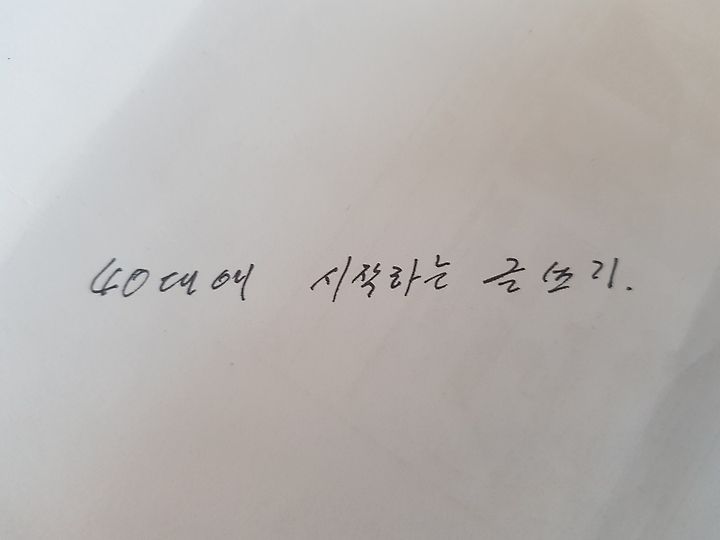 40대에 시작하는 글쓰기.